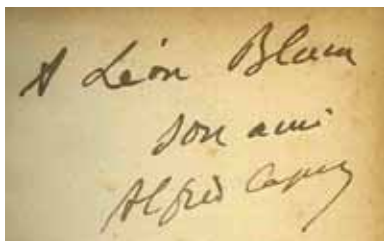 A Léon Blum
son ami
Alfred Capus